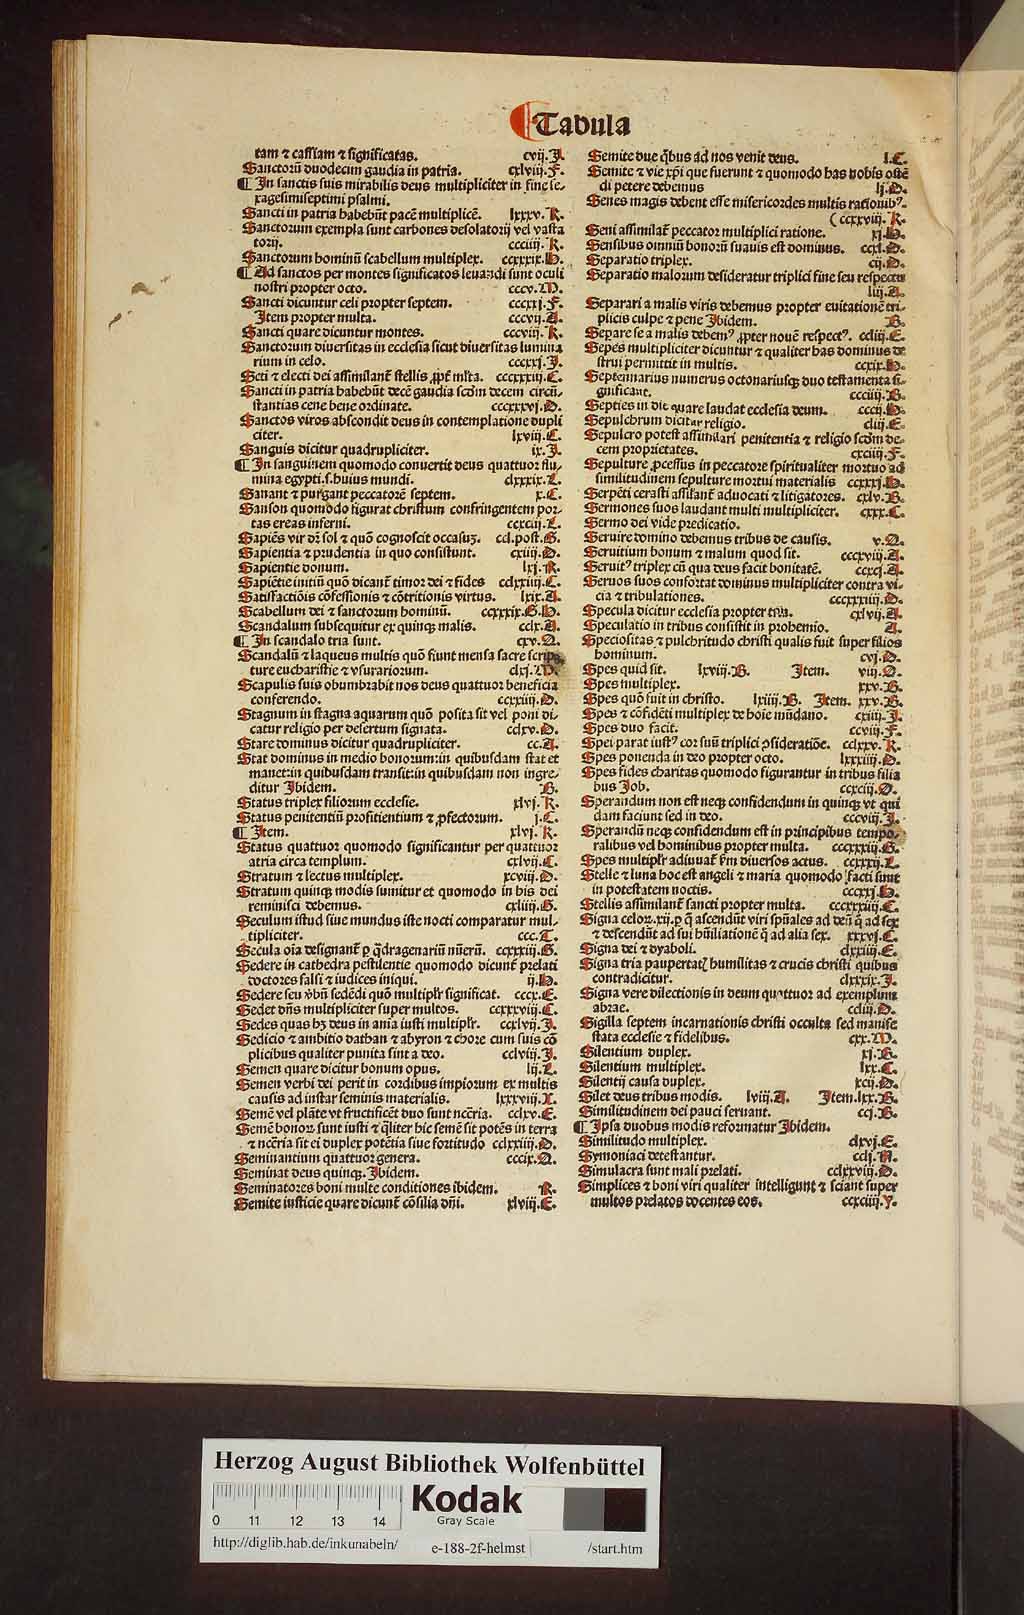 Tabula
tam ⁊ cassiam ⁊ significatas. cvij.I.
Sanctoꝝ duodecim gaudia in patria. cxlviij.F.
¶ In sanctis suis mirabilis deus multipliciter in fine se⸗
xagesimiseptimi psalmi.
Sancti in patria habebūt pacē multiplicē. lxxxv.K.
Sanctorum exempla sunt carbones desolatorij vel vasta
torij. ccciiij.K.
Sanctorum hominū scabellum multiplex. ccxxxix.H.
¶ Ad sanctos per montes significatos leuandi sunt oculi
nostri propter octo. cccv.M.
Sancti dicuntur celi propter septem. ccccxxj.F.
Item propter multa. cccvij.A.
Sancti quare dicuntur montes. cccviij.K.
Sanctorum diuersitas in ecclesia sicut diuersitas lumina
rium in celo. ccccxj.I.
Scti ⁊ electi dei assimilant̄ stellis ꝓpt̄ ml̄ta. ccccxxxiij.C.
Sancti in patria habebūt decē gaudia scd̄m decem circū⸗
stantias cene bene ordinate. ccccxxvj.D.
Sanctos viros abscondit deus in contemplatione dupli
citer. lxviij.C.
Sanguis dicitur quadrupliciter. ix.I.
¶ In sanguinem quomodo conuertit deus quattuor flu⸗
mina egypti.s.huius mundi. clxxxix.L.
Sanant ⁊ purgant peccatorē septem. x.C.
Sanson quomodo figurat christum confringentem por⸗
tas ereas inferni. ccxciij.L.
Sapiēs vir dr̄ sol ⁊ quō cognoscit occasuꝫ. ccl.post.G.
Sapientia ⁊ prudentia in quo consistunt. cxiij.D.
Sapientie donum. lxj.K.
Sapiētie initiū quō dicant̄ timor dei ⁊ fides cclxxiiij.C.
Satisfactiōis cōfessionis ⁊ cōtritionis virtus. lxix.A.
Scabellum dei ⁊ sanctorum hominū. ccxxxix.G.H.
Scandalum subsequitur ex quinqꝫ malis. cclx.A.
¶ In scandalo tria sunt. cxv.A.
Scandalū ⁊ laqueus multis quō fiunt mensa sacre scrip⸗
ture eucharistie ⁊ vsurariorum. clxj.M.
Scapulis suis obumbrabit nos deus quattuor beneficia
conferendo. ccxxiiij.D.
Stagnum in stagna aquarum quō posita sit vel poni di⸗
catur religio per desertum signata. cclxv.D.
Stare dominus dicitur quadrupliciter. cc.A.
Stat dominus in medio bonorum:in quibusdam stat et
manet:in quibusdam transit:in quibusdam non ingre⸗
ditur Ibidem. B.
Status triplex filiorum ecclesie. xlvj.K.
Status penitentiū proficientium ⁊ ꝓfectorum. j.C.
¶ Item. xlvj.K.
Status quattuor quomodo significantur per quattuor
atria circa templum. cxlvij.C.
Stratum ⁊ lectus multiplex. xcviij.D.
Stratum quinqꝫ modis sumitur et quomodo in his dei
reminisci debemus. cxliij.G.
Seculum istud siue mundus iste nocti comparatur mul⸗
tipliciter. ccc.T.
Secula oīa designant̄ ꝑ q̄dragenariū nūerū. ccxxxiij.G.
Sedere in cathedra pestilentie quomodo dicunt̄ prelati
doctores falsi ⁊ iudices iniqui. ij.H.
Sedere seu vb̄ū sedēdi quō multiplr̄ significat. cccx.E.
Sedet dn̄s multipliciter super multos. ccxxxviij.C.
Sedes quas hꝫ deus in aīa iusti multiplr̄. ccxlvij.I.
Sedicio ⁊ ambitio dathan ⁊ abyron ⁊ chore cum suis cō
plicibus qualiter punita sint a deo. cclviij.I.
Semen quare dicitur bonum opus. lij.L.
Semen verbi dei perit in cordibus impiorum ex multis
causis ad instar seminis materialis. lxxxviij.X.
Semē vel plāte vt fructificēt duo sunt nccria. cclxv.E.
Semē bonoꝝ sunt iusti ⁊ q̄liter hic semē sit potēs in terra
⁊ nccria sit ei duplex potētia siue fortitudo cclxxiiij.D.
Seminantium quattuor genera. cccix.A.
Seminat deus quinqꝫ. Ibidem.
Seminatores boni multe conditiones ibidem. K.
Semite iusticie quare dicunt̄ cōsilia dn̄i. xlviij.E.
Semite due q̄bus ad nos venit deus. l.C.
Semite ⁊ vie xp̄i que fuerunt ⁊ quomodo has nobis ostē
di petere debemus lj.D.
Senes magis debent esse misericordes multis rationibꝰ.
( ccxxviij.K.
Seni assimilat̄ peccator multiplici ratione. xj.H.
Sensibus omniū bonorū suauis est dominus. ccxl.D.
Separatio triplex. cij.D.
Separatio malorum desideratur triplici fine seu respectu
liij.A.
Separari a malis viris debemus propter euitationē tri⸗
plicis culpe ⁊ pene Ibidem. B.
Separe se a malis debemꝰ ꝓpter nouē respectꝰ. ccliij.E.
Sepes multipliciter dicuntur ⁊ qualiter has dominus de
strui permittit in multis. ccxix.H.
Septennarius numerus octonariusqꝫ duo testamenta si⸗
gnificant. cccciij.B.
Septies in die quare laudat ecclesia deum. cccij.H.
Sepulchrum dicitur religio. cliij.E.
Sepulcro potest assimilari penitentia ⁊ religio scd̄m de⸗
cem proprietates. cxciiij.F.
Sepulture ꝓcessus in peccatore spiritualiter mortuo ad
similitudinem sepulture mortui materialis ccxxxj.H.
Serpēti cerasti assil̄ant̄ aduocati ⁊ litigatores. cxlv.B.
Sermones suos laudant multi multipliciter. cxxx.C.
Sermo dei vide predicatio.
Seruire domino debemus tribus de causis. v.A.
Seruitium bonum ⁊ malum quod sit. cccxviij.A.
Seruitꝰ triplex cū qua deus facit bonitatē. ccxcj.A.
Seruos suos confortat dominus multipliciter contra vi⸗
cia ⁊ tribulationes. ccccxxiiij.D.
Specula dicitur ecclesia propter tria. cxlvij.A.
Speculatio in tribus consistit in prohemio. A.
Speciositas ⁊ pulchritudo christi qualis fuit super filios
hominum. cvj.D.
Spes quid sit. lxviij.B. Item. viij.D.
Spes multiplex. xxv.B.
Spes quō fuit in christo. lxiiij.B. Item. xxv.B.
Spes ⁊ cōfidēti multiplex de hoīe mūdano. cxiiij.I.
Spes duo facit. ccviij.F.
Spei parat iustꝰ cor suū triplici ꝯsideratiōe. cclxxv.K.
Spes ponenda in deo propter octo. lxxxiiij.D.
Spes fides charitas quomodo figurantur in tribus filia
bus Job. ccxciij.O.
Sperandum non est neqꝫ confidendum in quinqꝫ vt qui
dam faciunt sed in deo. cccviij.I.
Sperandū neqꝫ confidendum est in principibus tempo⸗
ralibus vel hominibus propter multa. ccccxxiij.G.
Spes multiplr̄ adiuuat fm diuersos actus. ccxxxij.L.
Stelle ⁊ luna hoc est angeli ⁊ maria quomodo facti sunt
in potestatem noctis. ccccxj.H.
Stellis assimilant̄ sancti propter multa. ccccxxxiiij.C.
Signa celoꝝ.xij.ꝑ q̄ ascendūt viri sp̄uales ad deū q̄ ad sex
⁊ descendūt ad sui hūiliationē q̄ ad alia sex. xxxvj.C.
Signa dei ⁊ dyaboli. clxxiiij.E.
Signa tria paupertatꝭ humilitas ⁊ crucis christi quibus
contradicitur. clxxxix.I.
Signa vere dilectionis in deum quattuor ad exemplum
abrae. ccliij.D.
Sigilla septem incarnationis christi occulta sed manife
stata ecclesie ⁊ fidelibus. cxx.M.
Silentium duplex. xj.B.
Silentium multiplex. lxx.C.
Silentij causa duplex. xcij.D.
Silet deus tribus modis. lviij.A. Item.lxx.B.
Similitudinem dei pauci seruant. ccj.B.
¶ Ipsa duobus modis reformatur Ibidem.
Similitudo multiplex. clxvj.E.
Symoniaci detestantur. cclj.N.
Simulacra sunt mali prelati. cclxxviij.D.
Simplices ⁊ boni viri qualiter intelligunt ⁊ sciant super
multos prelatos docentes eos. ccxciiij.Y.
Herzog August Bibliothek Wolfenbüttel
0 11 12 13 14
Kodak
Gray Scale
http://diglib.hab.de/inkunabeln/ e-188-2f-helmst /start.htm